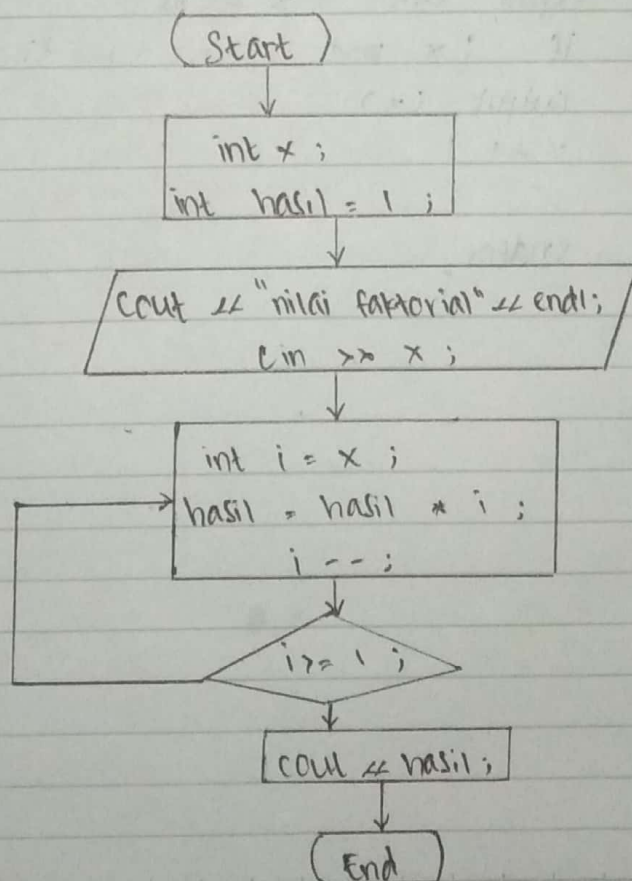 Start
int x ;
int hasil = 1 ;
cout << "nilai faktorial" << endl;
cin >> x ;
int i = x ;
hasil = hasil * i ;
i -- ;
i >= 1 ;
cout << hasil ;
End